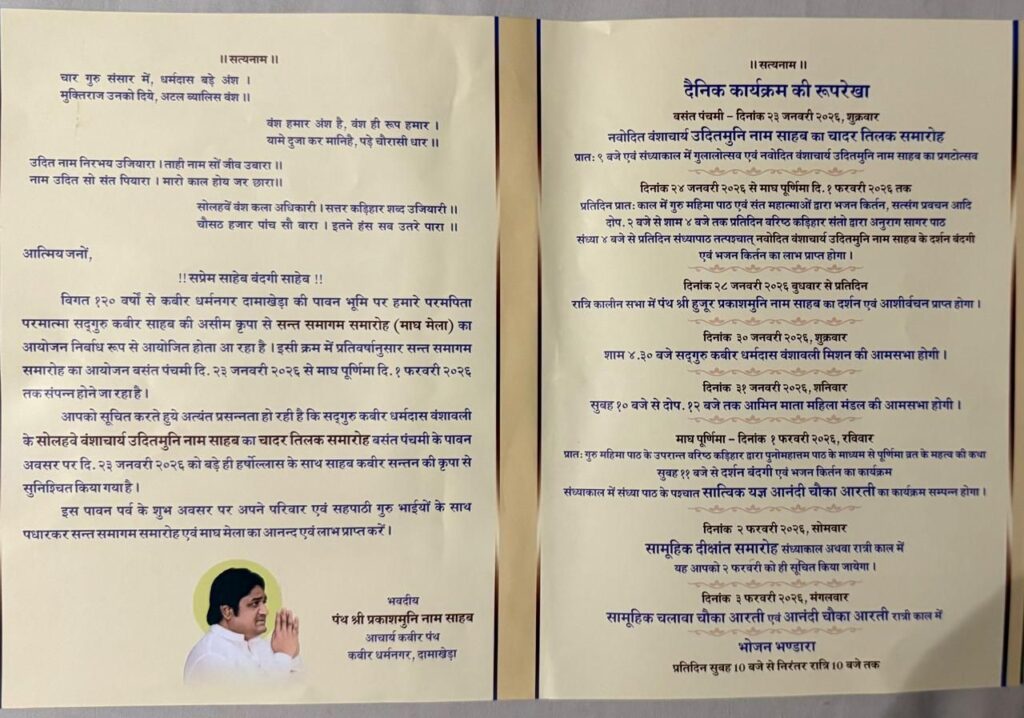 ॥ सत्यनाम ॥
चार गुरु संसार में, धर्मदास बड़े अंश ।
मुक्तिराज उनको दिये, अटल ब्यालिस वंश ॥
वंश हमार अंश है, वंश ही रूप हमार ।
यामे दुजा कर मानिहै, पड़े चौरासी धार ॥
उदित नाम निरभय उजियारा । ताही नाम सों जीव उबारा ॥
नाम उदित सो संत पियारा । मारो काल होय जर छारा॥
सोलहवें वंश कला अधिकारी । सत्तर कड़िहार शब्द उजियारी ॥
चौसठ हजार पांच सौ बारा । इतने हंस सब उतरे पारा ॥
आत्मिय जनों,
!! सप्रेम साहेब बंदगी साहेब !!
विगत १२० वर्षों से कबीर धर्मनगर दामाखेड़ा की पावन भूमि पर हमारे परमपिता
परमात्मा सद्‌गुरु कबीर साहब की असीम कृपा से सन्त समागम समारोह (माघ मेला) का
आयोजन निर्बाध रूप से आयोजित होता आ रहा है । इसी क्रम में प्रतिवर्षानुसार सन्त समागम
समारोह का आयोजन बसंत पंचमी दि. २३ जनवरी २०२६ से माघ पूर्णिमा दि. १ फरवरी २०२६
तक संपन्न होने जा रहा है ।
आपको सूचित करते हुये अत्यंत प्रसन्नता हो रही है कि सद्‌गुरु कबीर धर्मदास वंशावली
के सोलहवे वंशाचार्य उदितमुनि नाम साहब का चादर तिलक समारोह बसंत पंचमी के पावन
अवसर पर दि. २३ जनवरी २०२६ को बड़े ही हर्षोल्लास के साथ साहब कबीर सन्तन की कृपा से
सुनिश्चित किया गया है ।
इस पावन पर्व के शुभ अवसर पर अपने परिवार एवं सहपाठी गुरु भाईयों के साथ
पधारकर सन्त समागम समारोह एवं माघ मेला का आनन्द एवं लाभ प्राप्त करें ।
भवदीय
पंथ श्री प्रकाशमुनि नाम साहब
आचार्य कबीर पंथ
कबीर धर्मनगर, दामाखेड़ा
॥ सत्यनाम ॥
दैनिक कार्यक्रम की रूपरेखा
वसंत पंचमी – दिनांक २३ जनवरी २०२६, शुक्रवार
नवोदित वंशाचार्य उदितमुनि नाम साहब का चादर तिलक समारोह
प्रातः ९ बजे एवं संध्याकाल में गुलालोत्सव एवं नवोदित वंशाचार्य उदितमुनि नाम साहब का प्रगटोत्सव
दिनांक २४ जनवरी २०२६ से माघ पूर्णिमा दि. १ फरवरी २०२६ तक
प्रतिदिन प्रातः काल में गुरु महिमा पाठ एवं संत महात्माओं द्वारा भजन किर्तन, सत्संग प्रवचन आदि
दोप. २ बजे से शाम ४ बजे तक प्रतिदिन वरिष्ठ कड़िहार संतो द्वारा अनुराग सागर पाठ
संध्या ४ बजे से प्रतिदिन संध्यापाठ तत्पश्चात् नवोदित वंशाचार्य उदितमुनि नाम साहब के दर्शन बंदगी
एवं भजन किर्तन का लाभ प्राप्त होगा ।
दिनांक २८ जनवरी २०२६ बुधवार से प्रतिदिन
रात्रि कालीन सभा में पंथ श्री हुजूर प्रकाशमुनि नाम साहब का दर्शन एवं आशीवंचन प्राप्त होगा ।
दिनांक ३० जनवरी २०२६, शुक्रवार
शाम ४.३० बजे सद्‌गुरु कबीर धर्मदास वंशावली मिशन की आमसभा होगी ।
दिनांक ३१ जनवरी २०२६, शनिवार
सुबह १० बजे से दोप. १२ बजे तक आमिन माता महिला मंडल की आमसभा होगी ।
माघ पूर्णिमा – दिनांक १ फरवरी २०२६, रविवार
प्रातः गुरु महिमा पाठ के उपरान्त वरिष्ठ कड़िहार द्वारा पुनोमहात्तम पाठ के माध्यम से पूर्णिमा व्रत के महत्व की कथा
सुबह ११ बजे से दर्शन बंदगी एवं भजन किर्तन का कार्यक्रम
संध्याकाल में संध्या पाठ के पश्चात सात्विक यज्ञ आनंदी चौका आरती का कार्यक्रम सम्पन्न होगा ।
दिनांक २ फरवरी २०२६, सोमवार
सामूहिक दीक्षांत समारोह संध्याकाल अथवा रात्री काल में
यह आपको २ फरवरी को ही सूचित किया जायेगा ।
दिनांक ३ फरवरी २०२६, मंगलवार
सामूहिक चलावा चौका आरती एवं आनंदी चौका आरती रात्री काल में
भोजन भण्डारा
प्रतिदिन सुबह 10 बजे से निरंतर रात्रि 10 बजे तक